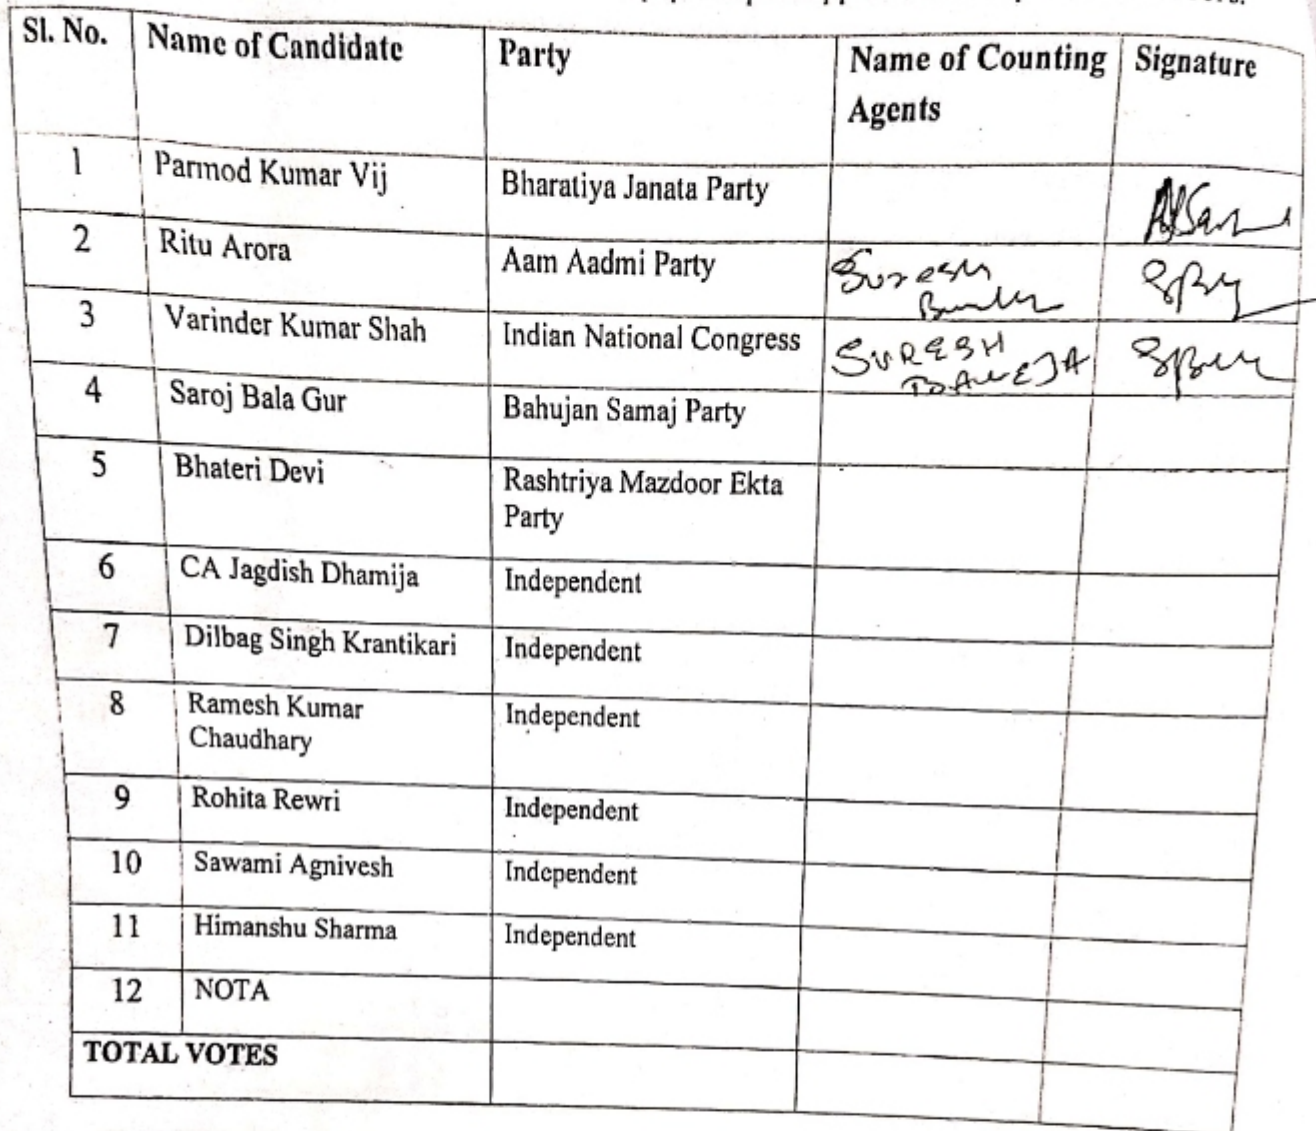 Sl. No. Name of Candidate Party Name of Counting Signature
Agents
1 Parmod Kumar Vij Bharatiya Janata Party
2 Ritu Arora Aam Aadmi Party Suresh
3 Varinder Kumar Shah Indian National Congress SURESH
4 Saroj Bala Gur Bahujan Samaj Party
5 Bhateri Devi Rashtriya Mazdoor Ekta
Party
6 CA Jagdish Dhamija Independent
7 Dilbag Singh Krantikari Independent
8 Ramesh Kumar Independent
Chaudhary
9 Rohita Rewri Independent
10 Sawami Agnivesh Independent
11 Himanshu Sharma Independent
12 NOTA
TOTAL VOTES